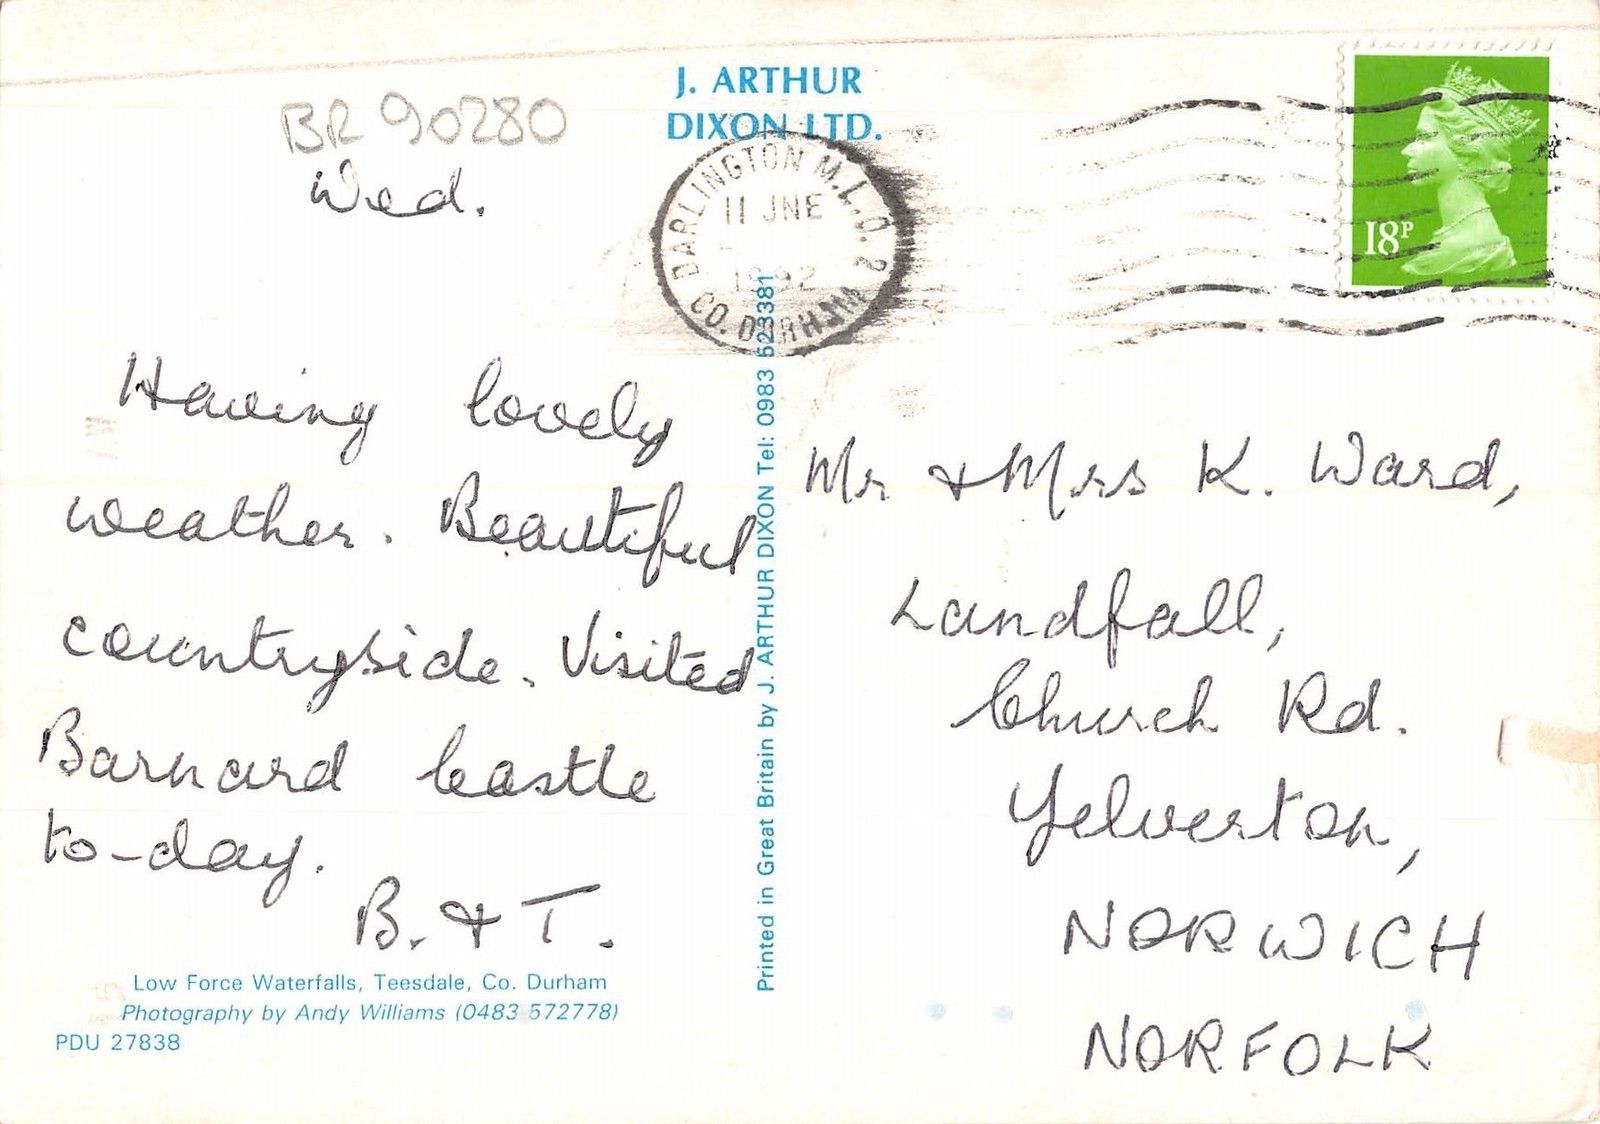 J. ARTHUR
DIXON LTD.
BR 90280
Wed.
DARLINGTON M.L.O. 2
11 JNE
1992
CO. DURHAM
18P
Having lovely
weather. Beautiful
countryside. Visited
Barnard Castle
to-day.
B. & T.
Low Force Waterfalls, Teesdale, Co. Durham
Photography by Andy Williams (0483 572778)
PDU 27838
Printed in Great Britain by J. ARTHUR DIXON Tel: 0983 523381
Mr & Mrs K. Ward,
Landfall,
Church Rd.
Yelverton,
NORWICH
NORFOLK